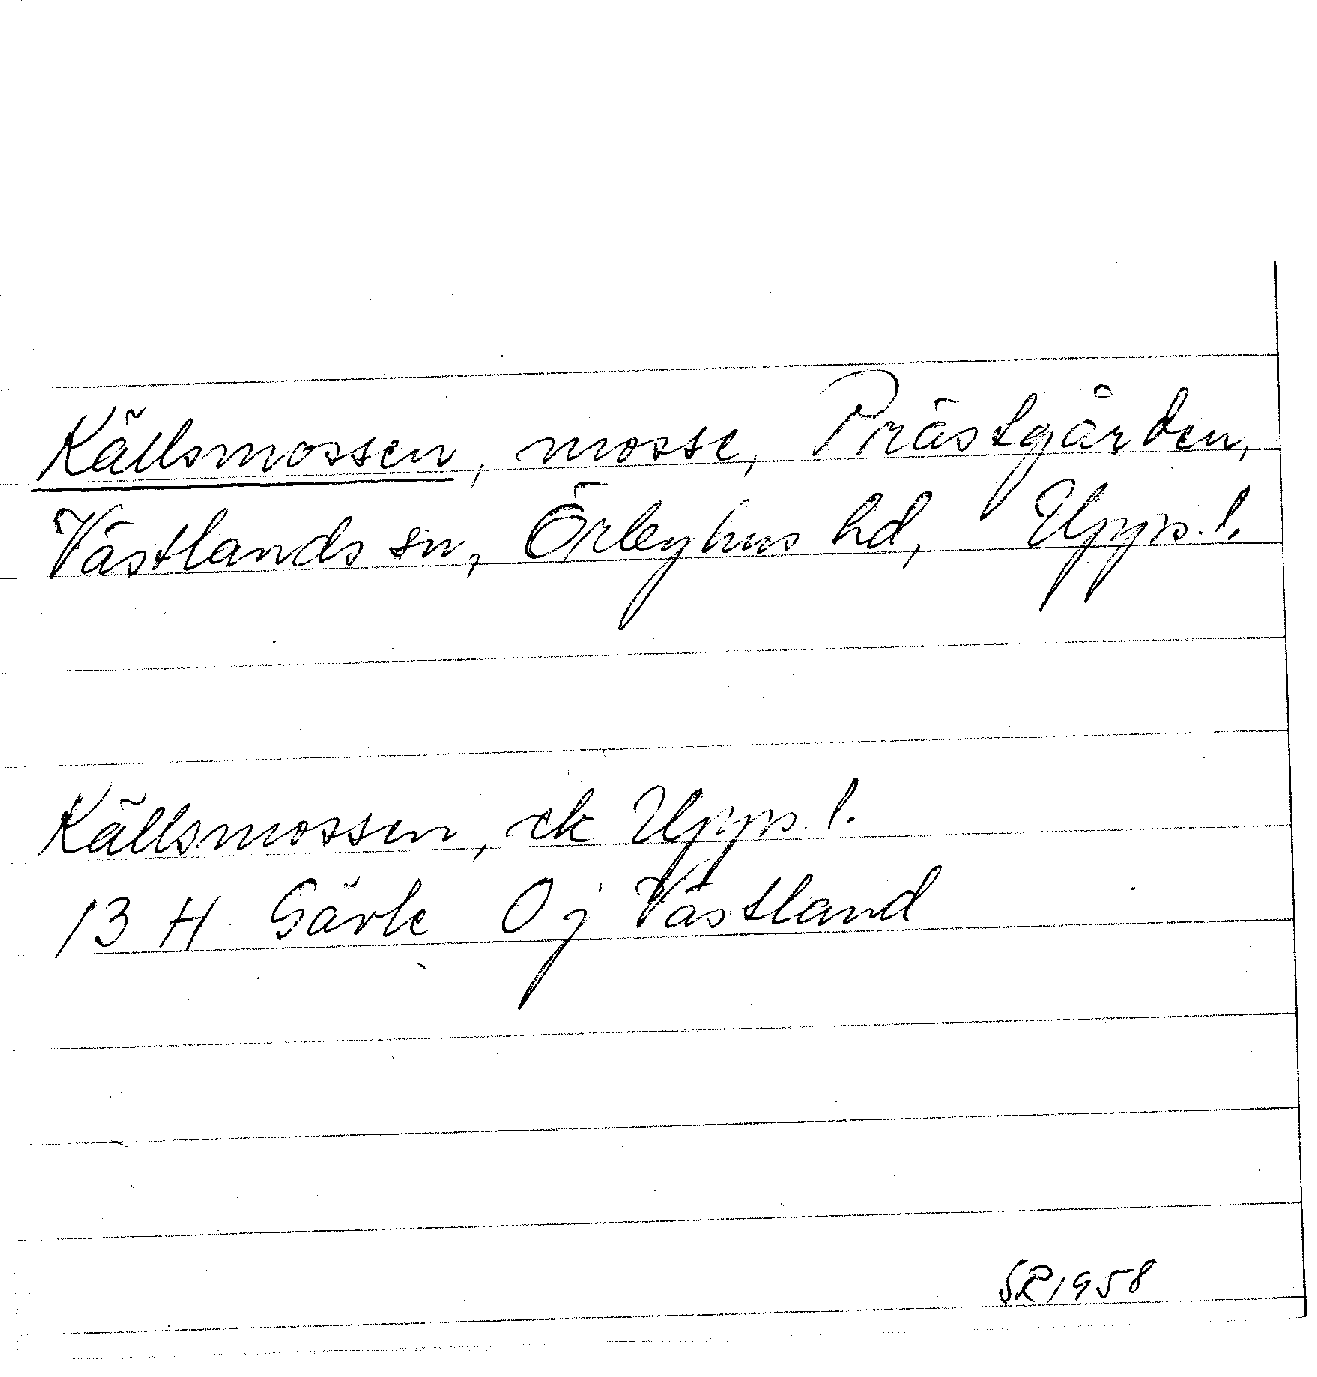 Källsmossen, mosse, Prästgården,
Västlands sn, Örbyhus hd, Upps. l.
Källsmossen, ek Upps. l.
13 H Gävle 0 j Västland
SR 1958